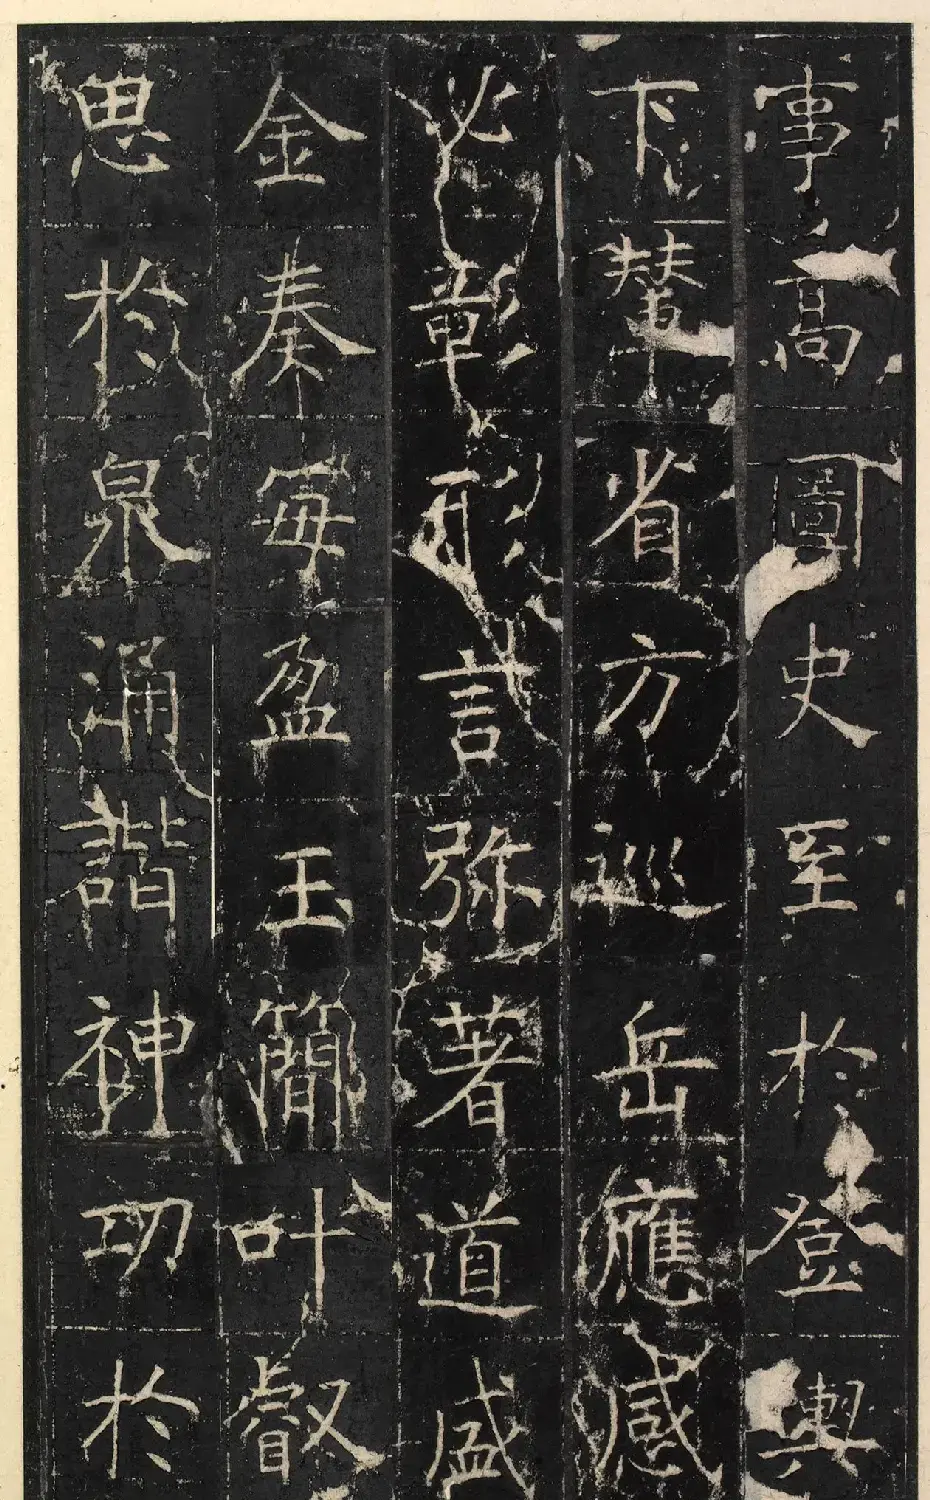 事高圖史至於登輿
下輦省方巡岳應感
必彰形言弥著道盛
金奏每盈王簡叶叡
思於泉涌諧神功於